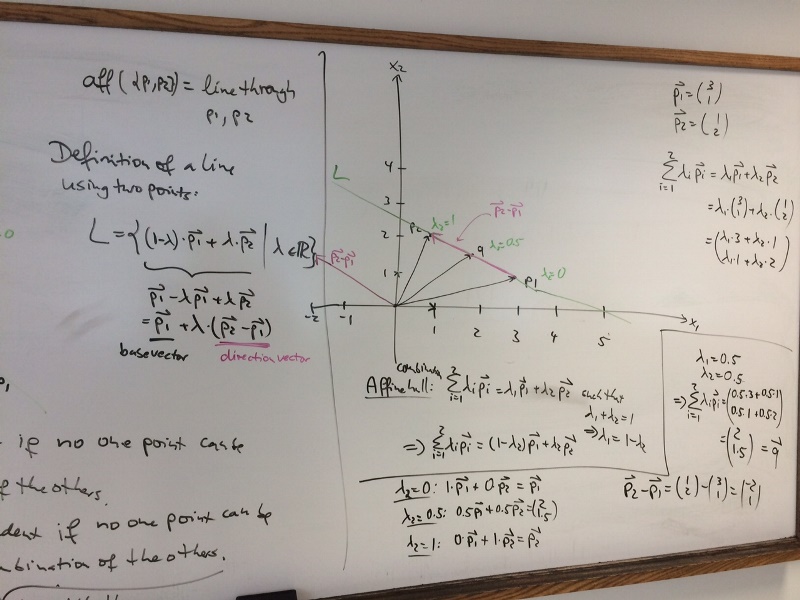 aff({p1,p2}) = line through
p1, p2
Definition of a line
using two points:
L = {(1-λ)·p⃗1 + λ·p⃗2 | λ ∈ ℝ}
p⃗1 - λp⃗1 + λp⃗2
= p⃗1 + λ·(p⃗2 - p⃗1)
base vector direction vector
if no one point can be
of the others.
dent if no one point can be
mbination of the others.
x2
L
4
3
2
1
p2 λ2=1
p⃗2-p⃗1
q λ2=0.5
p1 λ2=0
p⃗2-p⃗1
-2 -1 1 2 3 4 5 x1
combination
Affine hull: ∑_{i=1}^{2} λi p⃗i = λ1p⃗1 + λ2p⃗2 such that
λ1+λ2=1
⇒ λ1=1-λ2
⇒ ∑_{i=1}^{2} λi p⃗i = (1-λ2)p⃗1 + λ2p⃗2
λ2=0: 1·p⃗1 + 0·p⃗2 = p⃗1
λ2=0.5: 0.5p⃗1 + 0.5p⃗2 = (2 1.5)
λ2=1: 0·p⃗1 + 1·p⃗2 = p⃗2
p⃗1 = (3 1)
p⃗2 = (1 2)
∑_{i=1}^{2} λi p⃗i = λ1p⃗1 + λ2p⃗2
= λ1·(3 1) + λ2·(1 2)
= (λ1·3 + λ2·1
λ1·1 + λ2·2)
λ1=0.5
λ2=0.5
⇒ ∑_{i=1}^{2} λi p⃗i = (0.5·3+0.5·1
0.5·1+0.5·2)
= (2 1.5) = q⃗
p⃗2 - p⃗1 = (1 2) - (3 1) = (-2 1)